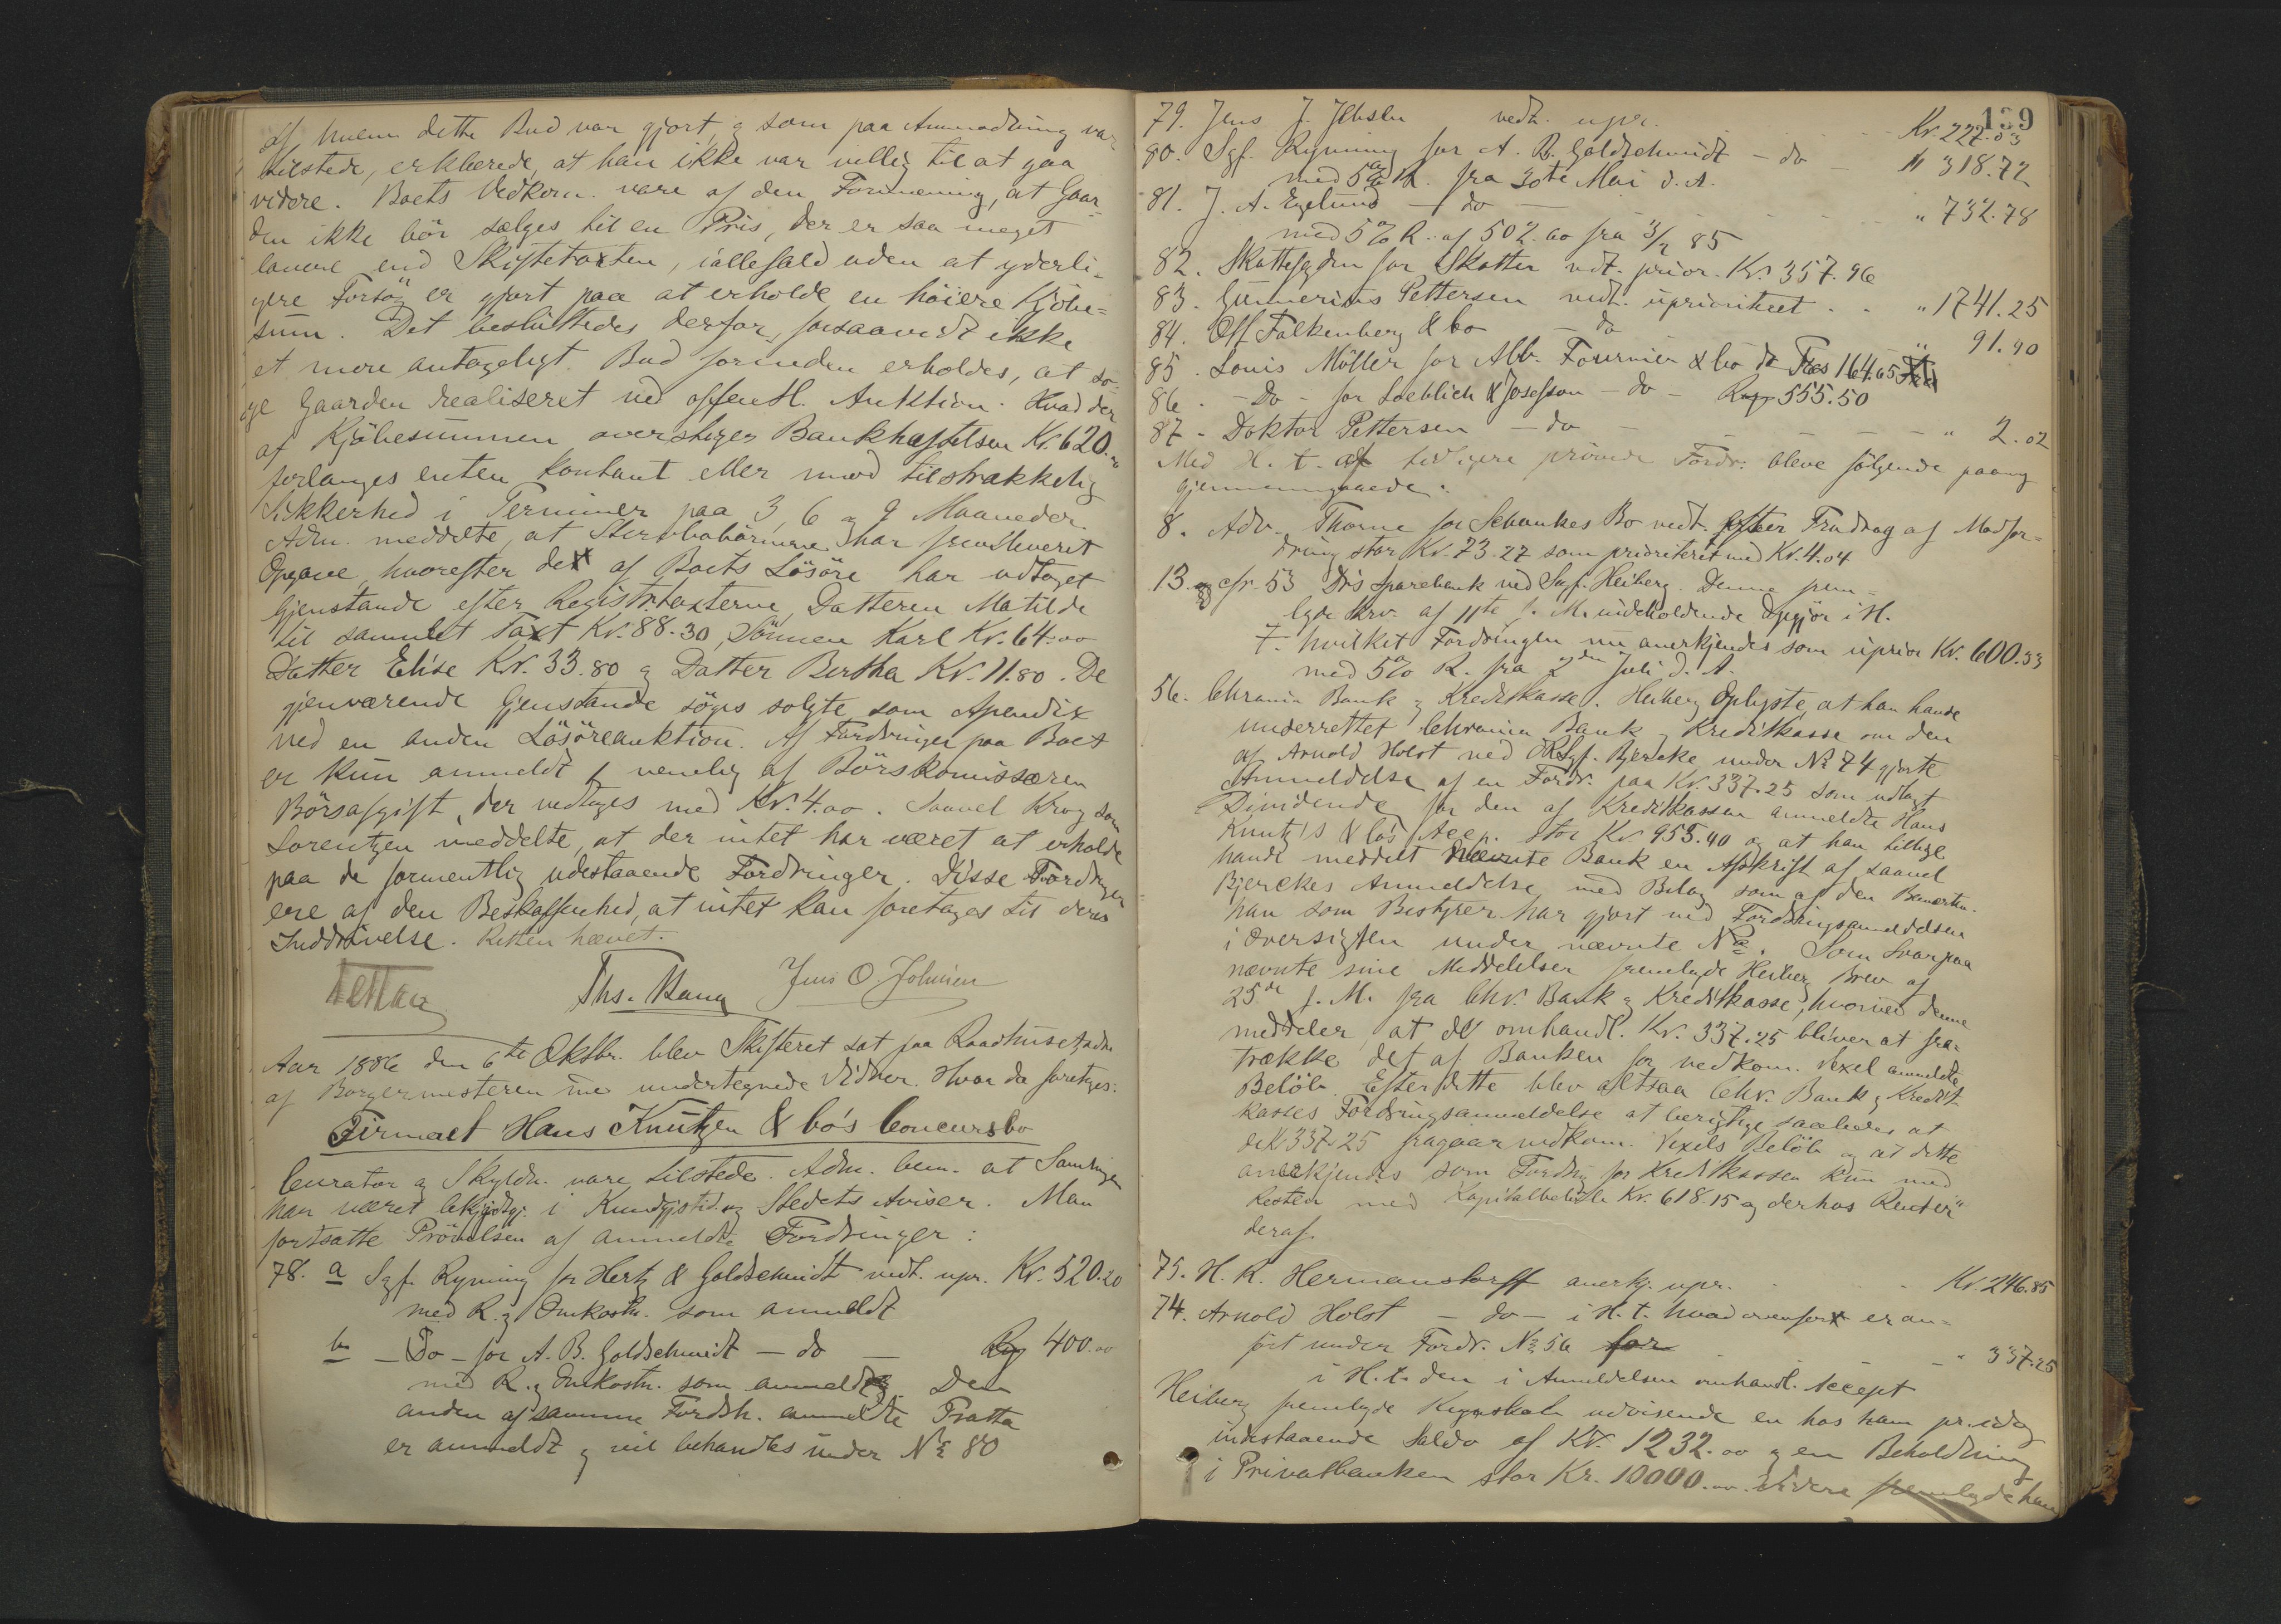 af hvem dette Bud var gjort, og som paa Anmodning var
tilstede, erklærede, at han ikke var villig til at gaa
videre. Boets Vedkom. vare af den Formening, at Gaar-
den ikke bör sælges til en Pris, der er saa meget
lavere end Skiftetaxten, iallefald uden at yderli-
gere Forsög er gjort paa at erholde en höiere Kjöbe-
sum. Det besluttedes derfor, forsaavidt ikke
et mere antageligt Bud forinden erholdes, at sö-
ge Gaarden realiseret ved offentl. Auktion. Hvad der
af Kjöbesummen overstiger Bankhæftelsen Kr. 620.00
forlanges enten kontant eller mod tilstrækkelig
Sikkerhed i Terminer paa 3, 6 og 9 Maaneder.
Adm. meddelte, at Stervbobörnene har fremleveret
Opgave, hvorefter det af Boets Lösöre har udtaget
Gjenstande efter Registr.taxterne, Datteren Matilde
til samlet Taxt Kr. 88.30, Sönnen Karl Kr. 64.00
Datter Elise Kr. 33.80 og Datter Bertha Kr. 11.80. De
gjenværende Gjenstande söges solgte som Apendix
ved en anden Lösöreauktion. Af Fordringer paa Boet
er kun anmeldt 1 nemlig af Börskomissæren
Börsafgift, der vedtages med Kr. 4.00. Saavel Krog som
Lorentzen meddelte, at der intet har været at erholde
paa de formentlig udestaaende Fordringer. Disse Fordringer
ere af den Beskaffenhed, at intet kan foretages til deres
Inddrivelse. Retten hævet.
Ths. Bang Jens O. Johnsen
Aar 1886 den 6te Oktbr. blev Skifteret sat paa Raadhuset, adm.
af Borgermesteren med undertegnede Vidner. Hvor da foretoges:
Firmaet Hans Knutzen & Co's Concursbo
Curator og Skyldn. vare tilstede. Adm. bem. at Samlingen
har været bekjendtgj. i Kundgjstid. og Stedets Aviser. Man
fortsatte Prövelsen af anmeldte Fordringer:
78. a Sgf. Rynning for Hertz & Goldschmidt vedt. upr. Kr. 520.20
med R. og Omkostn. som anmeldt
b - Do - for A. B. Goldschmidt - do - 400.00
med R. og Omkostn. som anmeldt. Den
anden af samme Fordrh. anmeldte Tratta
er anmeldt og vil behandles under No 80
139
79. Jens J. Jebsen vedt. upr. Kr. 227.03
80. Sgf. Rynning for A. B. Goldschmidt - do - " 318.72
med 5% R. fra 30te Mai d. A.
81. J. A. Egelund - do - " 732.78
med 5% R. af 502.60 fra 3/2 85
82. Skattefgden for Skatter vedt. prior. Kr. 357.96
83. Gunnerius Pettersen vedt. uprioriteret . . " 1741.25
84. Off Falkenberg & Co - do " 91.90
85. Louis Möller for Alb. Fournier & Co do Frcs 164.65
86. - Do - for Loeblich & Josefson - do - 555.50
87 - Doktor Pettersen - do - " 2.02
Med H. t. af tidligere prövede Fordr. bleve fölgende paany
gjennemgaaede:
8. Adv. Thorne for Schankes Bo vedt. efter Fradrag af Modfor-
dring stor Kr. 73.27 som prioriteret med Kr. 4.04
13 og cfr. 53 Drs Sparebank ved Sagf. Heiberg. Denne frem-
lagde Brv. af 11te f. M. indeholdende Opgjör i H.
t. hvilket Fordringen nu anerkjendes som uprior Kr. 600.33
med 5% R. fra 2den Juli d. A.
56. Chrania Bank og Kreditkasse. Heiberg oplyste, at han havde
underrettet Chrania Bank og Kreditkasse om den
af Arnold Holst ved ORSgf. Bjercke under No 74 gjorte
Anmeldelse af en Fordr. paa Kr. 337.25 som udlagt
Dividende for den af Kreditkassen anmeldte Hans
Knutzen & Co's Accp. stor Kr. 955.40 og at han tillige
havde meddelt nævnte Bank en Afskrift af saavel
Bjerckes Anmeldelse med Bilag som af den Bemærkn.
han som Bestyrer har gjort ved Fordringsanmeldelsen
i Oversigten under nævnte No. Som Svar paa
nævnte sine Meddelelser fremlagde Heiberg Brev af
25de f. M. fra Chr. Bank og Kreditkasse, hvorved denne
meddeler, at de omhandl. Kr. 337.25 bliver at fra-
trække det af Banken for vedkom. Vexel anmeldte
Belöb. Efter dette blev altsaa Chr. Bank og Kredit-
kasses Fordringsanmeldelse at berigtige saaledes at
de Kr 337.25 fragaar vedkom. Vexels Belöb og at dette
anerkjendes som Fordring for Kreditkassen kun med
Resten med Kapitalbelöb Kr. 618.15 og derhos Renter
deraf.
75. H. R. Hermanstorff anerkj. upr. Kr. 246.85
74. Arnold Holst - do - i H. t. hvad ovenfor er an-
fört under Fordr. No 56 for - " 337.25
i H. t. den i Anmeldelsen omhandl. Accept
Heiberg fremlagde Regnskab udvisende en hos ham pr. idag
indestaaende Saldo af Kr. 1232.00 og en Beholdning
i Privatbanken stor Kr. 10000.00. Videre fremlagde han